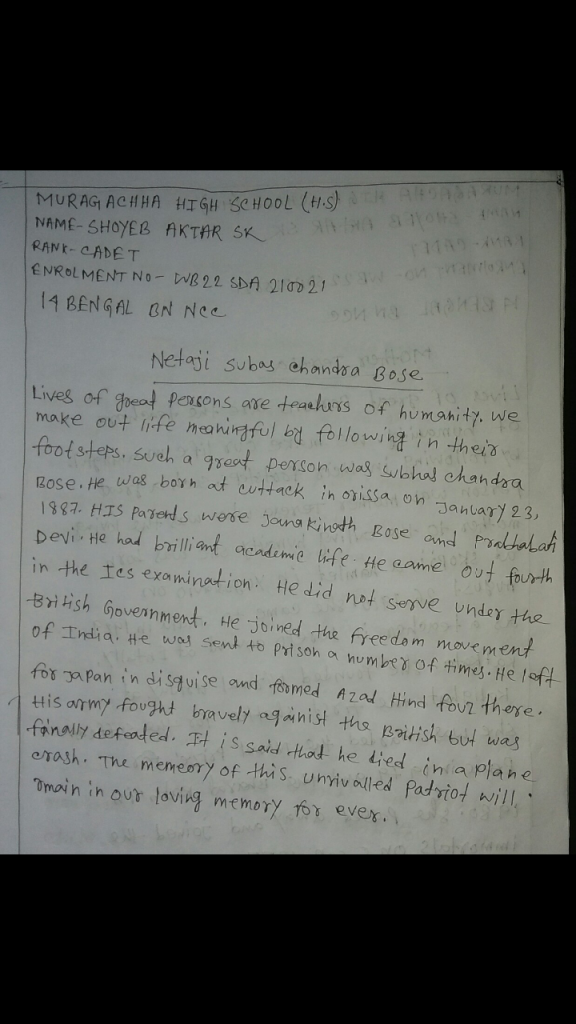 MURAGACHHA HIGH SCHOOL (H.S)
NAME- SHOYEB AKTAR SK
RANK- CADET
ENROLMENT NO - WB22 SDA 210021
14 BENGAL BN NCC
Netaji Subas Chandra Bose
Lives of great Persons are teachers of humanity. We
make out life meaningful by following in their
footsteps. Such a great person was Subhas Chandra
Bose. He was born at cuttack in orissa on January 23,
1887. HIS Parents were Janakinath Bose and Prabhabati
Devi. He had brilliant academic life. He came out fourth
in the Ics examination. He did not serve under the
British Government. He joined the freedom movement
of India. He was sent to prison a number of times. He left
for Japan in disguise and formed Azad Hind fouz there.
His army fought bravely againist the British but was
finally defeated. It is said that he died in a plane
crash. The memeory of this unrivalled Patriot will
rmain in our loving memory for ever.